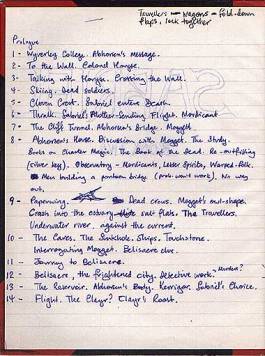 Travellers — wagons — fold-down
flaps, lock together
Prologue
1 - Wyverley College. Abhorsen's message.
2 - To the Wall. Colonel Horyse.
3 - Talking with Horyse. Crossing the Wall.
4 - Skiing. Dead soldiers.
5 - Cloven Crest. Sabriel enters Death.
6 - Thralk. Sabriel's Mother-Sending. Flight. Mordicant
7 - The Cliff Tunnel. Abhorsen's Bridge. Mogget
8 - Abhorsen's House. Discussion with Mogget. The Study.
Books on Charter Magic, The Book of the Dead. Re-outfitting
(silver key). Observatory - Mordicants, Lesser Spirits, Warped-folk.
Men building a pontoon bridge (prob. won't work). No way
out.
9 - Paperwing. Dead crows. Mogget's out-shape.
Crash into the salt flats. The Travellers.
Underwater river, against the current.
10 - The Caves. The Sinkhole. Ships. Touchstone.
Interrogating Mogget. Belisaere clue.
11 - Journey to Belisaere.
12 - Belisaere, the frightened city. Detective work. Murders?
13 - The Reservoir. Abhorsen's Body. Kerrigor. Sabriel's Choice.
14 - Flight. The Clayr? Clayr's Roost.